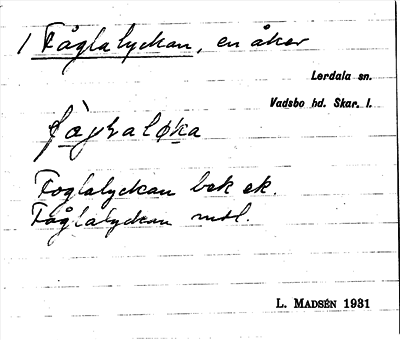 1 Fåglalyckan, en åker
Lerdala sn.
Vadsbo hd. Skar. l.
Foglalyckan bek ek.
Fåglalyckan mdl.
L. MADSÉN 1931